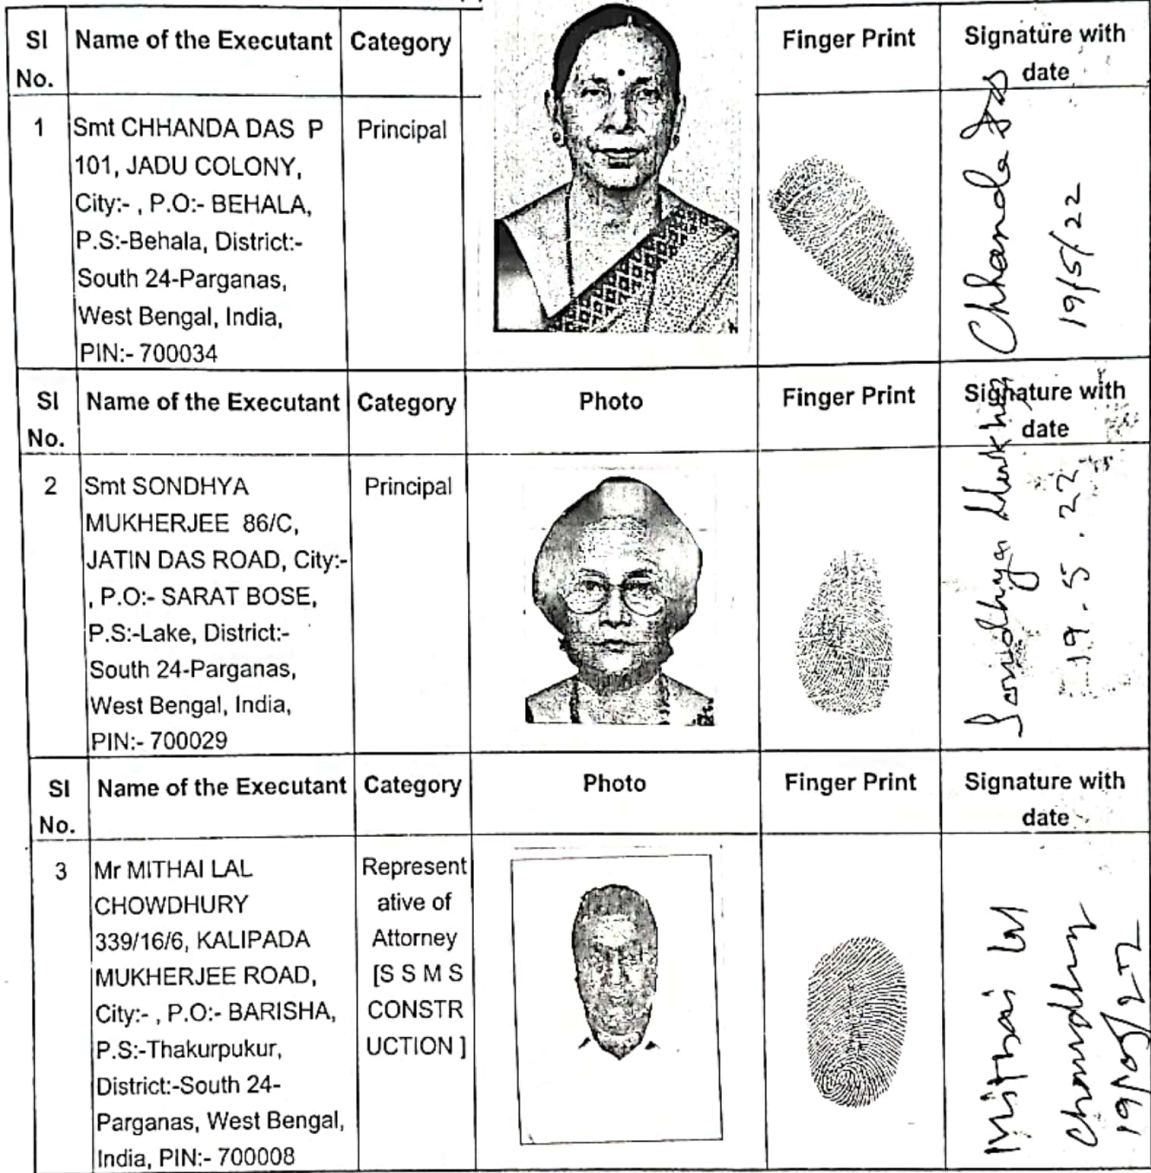 Sl
No.
Name of the Executant
Category
Finger Print
Signature with
date
1
Smt CHHANDA DAS P
101, JADU COLONY,
City:- , P.O:- BEHALA,
P.S:-Behala, District:-
South 24-Parganas,
West Bengal, India,
PIN:- 700034
Principal
Chhanda Das
19/5/22
Sl
No.
Name of the Executant
Category
Photo
Finger Print
Signature with
date
2
Smt SONDHYA
MUKHERJEE 86/C,
JATIN DAS ROAD, City:-
, P.O:- SARAT BOSE,
P.S:-Lake, District:-
South 24-Parganas,
West Bengal, India,
PIN:- 700029
Principal
19.5.22
Sl
No.
Name of the Executant
Category
Photo
Finger Print
Signature with
date
3
Mr MITHAI LAL
CHOWDHURY
339/16/6, KALIPADA
MUKHERJEE ROAD,
City:- , P.O:- BARISHA,
P.S:-Thakurpukur,
District:-South 24-
Parganas, West Bengal,
India, PIN:- 700008
Represent
ative of
Attorney
[S S M S
CONSTR
UCTION ]
Mithai Lal
Chowdhury
19/05/22